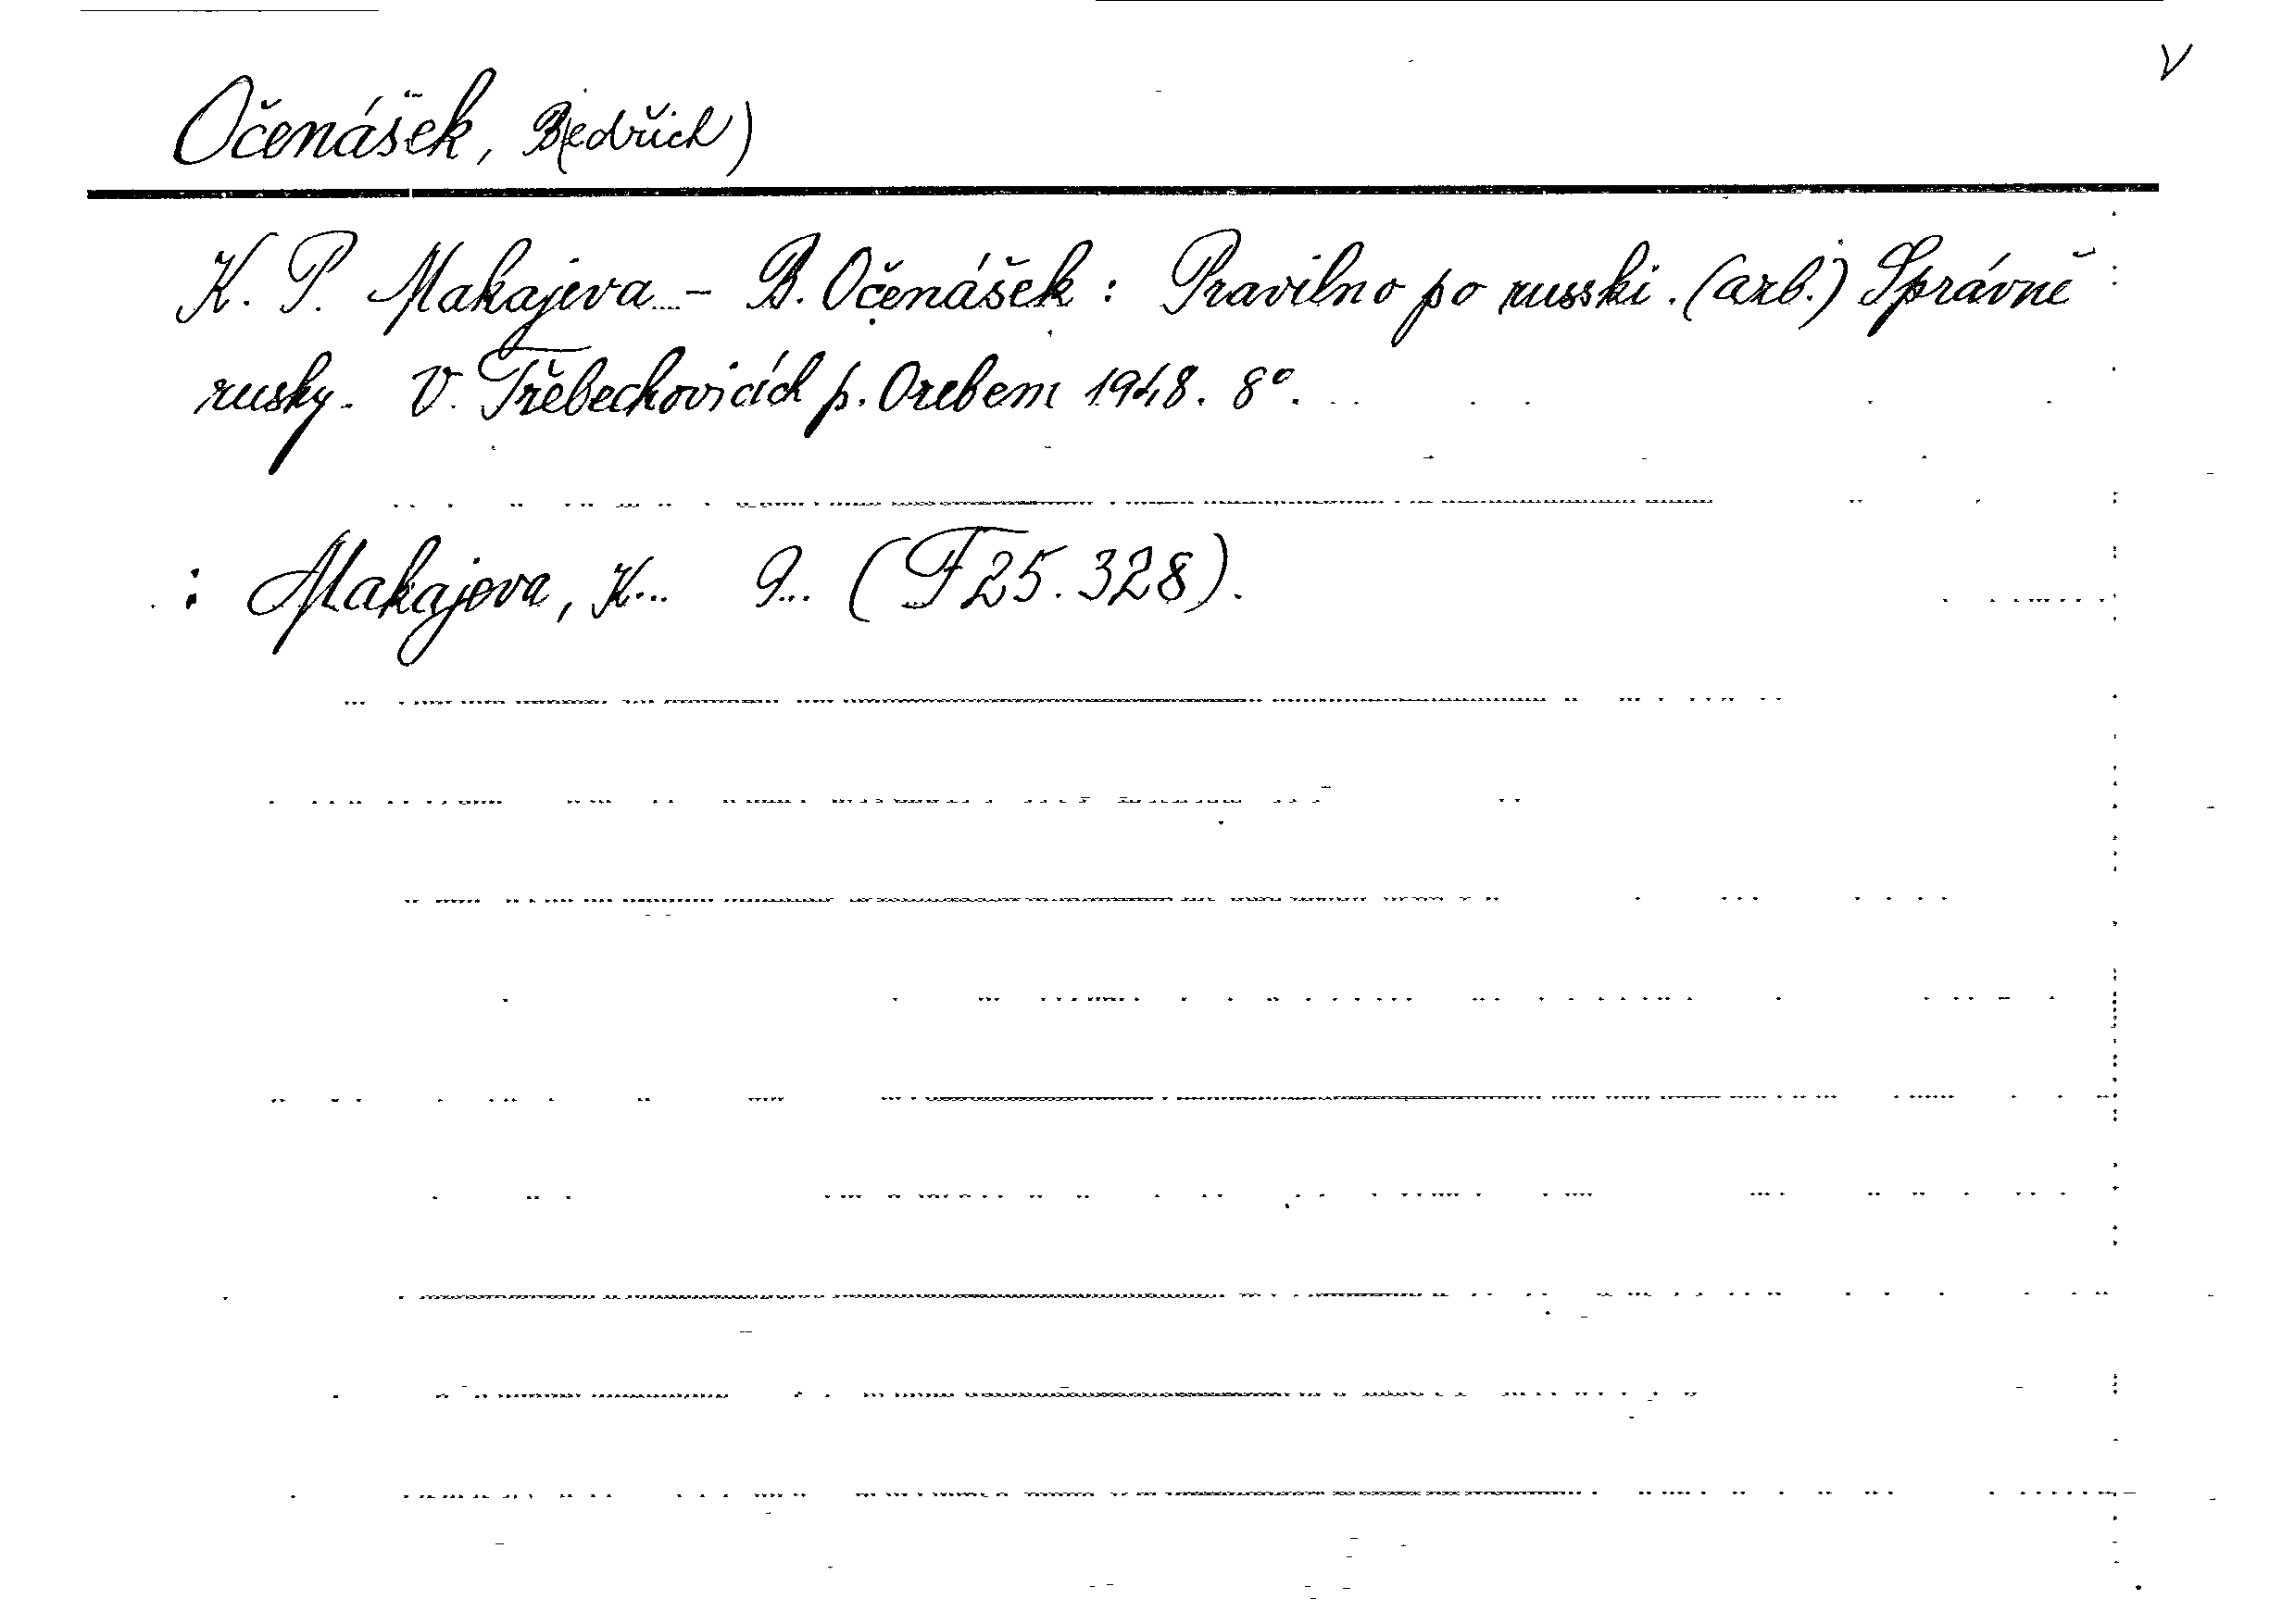 V
Očenášek, B(edřich)
K. P. Makajeva - B. Očenášek : Pravilno po russki. (azb.) Správně
rusky. V Třebechovicích p. Orebem 1948. 8°.
: Makajeva, K... P... (F 25.328).